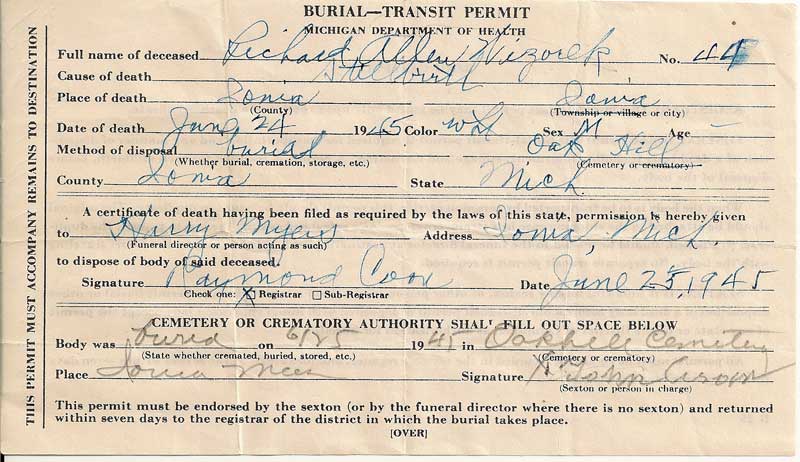 BURIAL—TRANSIT PERMIT
MICHIGAN DEPARTMENT OF HEALTH
Full name of deceased Richard Allen Wizorek No. 44
Cause of death Stillbirth
Place of death Ionia Ionia
(County) (Township or village or city)
Date of death June 24 1945 Color Wht Sex M Age -
Method of disposal burial Oak Hill
(Whether burial, cremation, storage, etc.) (Cemetery or crematory)
County Ionia State Mich.
A certificate of death having been filed as required by the laws of this state, permission is hereby given
to Harry Myers Address Ionia, Mich.
(Funeral director or person acting as such)
to dispose of body of said deceased.
Signature Raymond Coon Date June 25, 1945
Check one: X Registrar Sub-Registrar
CEMETERY OR CREMATORY AUTHORITY SHALL FILL OUT SPACE BELOW
Body was buried on 6/25 1945 in Oakhill Cemetery
(State whether cremated, buried, stored, etc.) (Cemetery or crematory)
Place Ionia Mich Signature John
(Sexton or person in charge)
This permit must be endorsed by the sexton (or by the funeral director where there is no sexton) and returned
within seven days to the registrar of the district in which the burial takes place.
[OVER]
THIS PERMIT MUST ACCOMPANY REMAINS TO DESTINATION